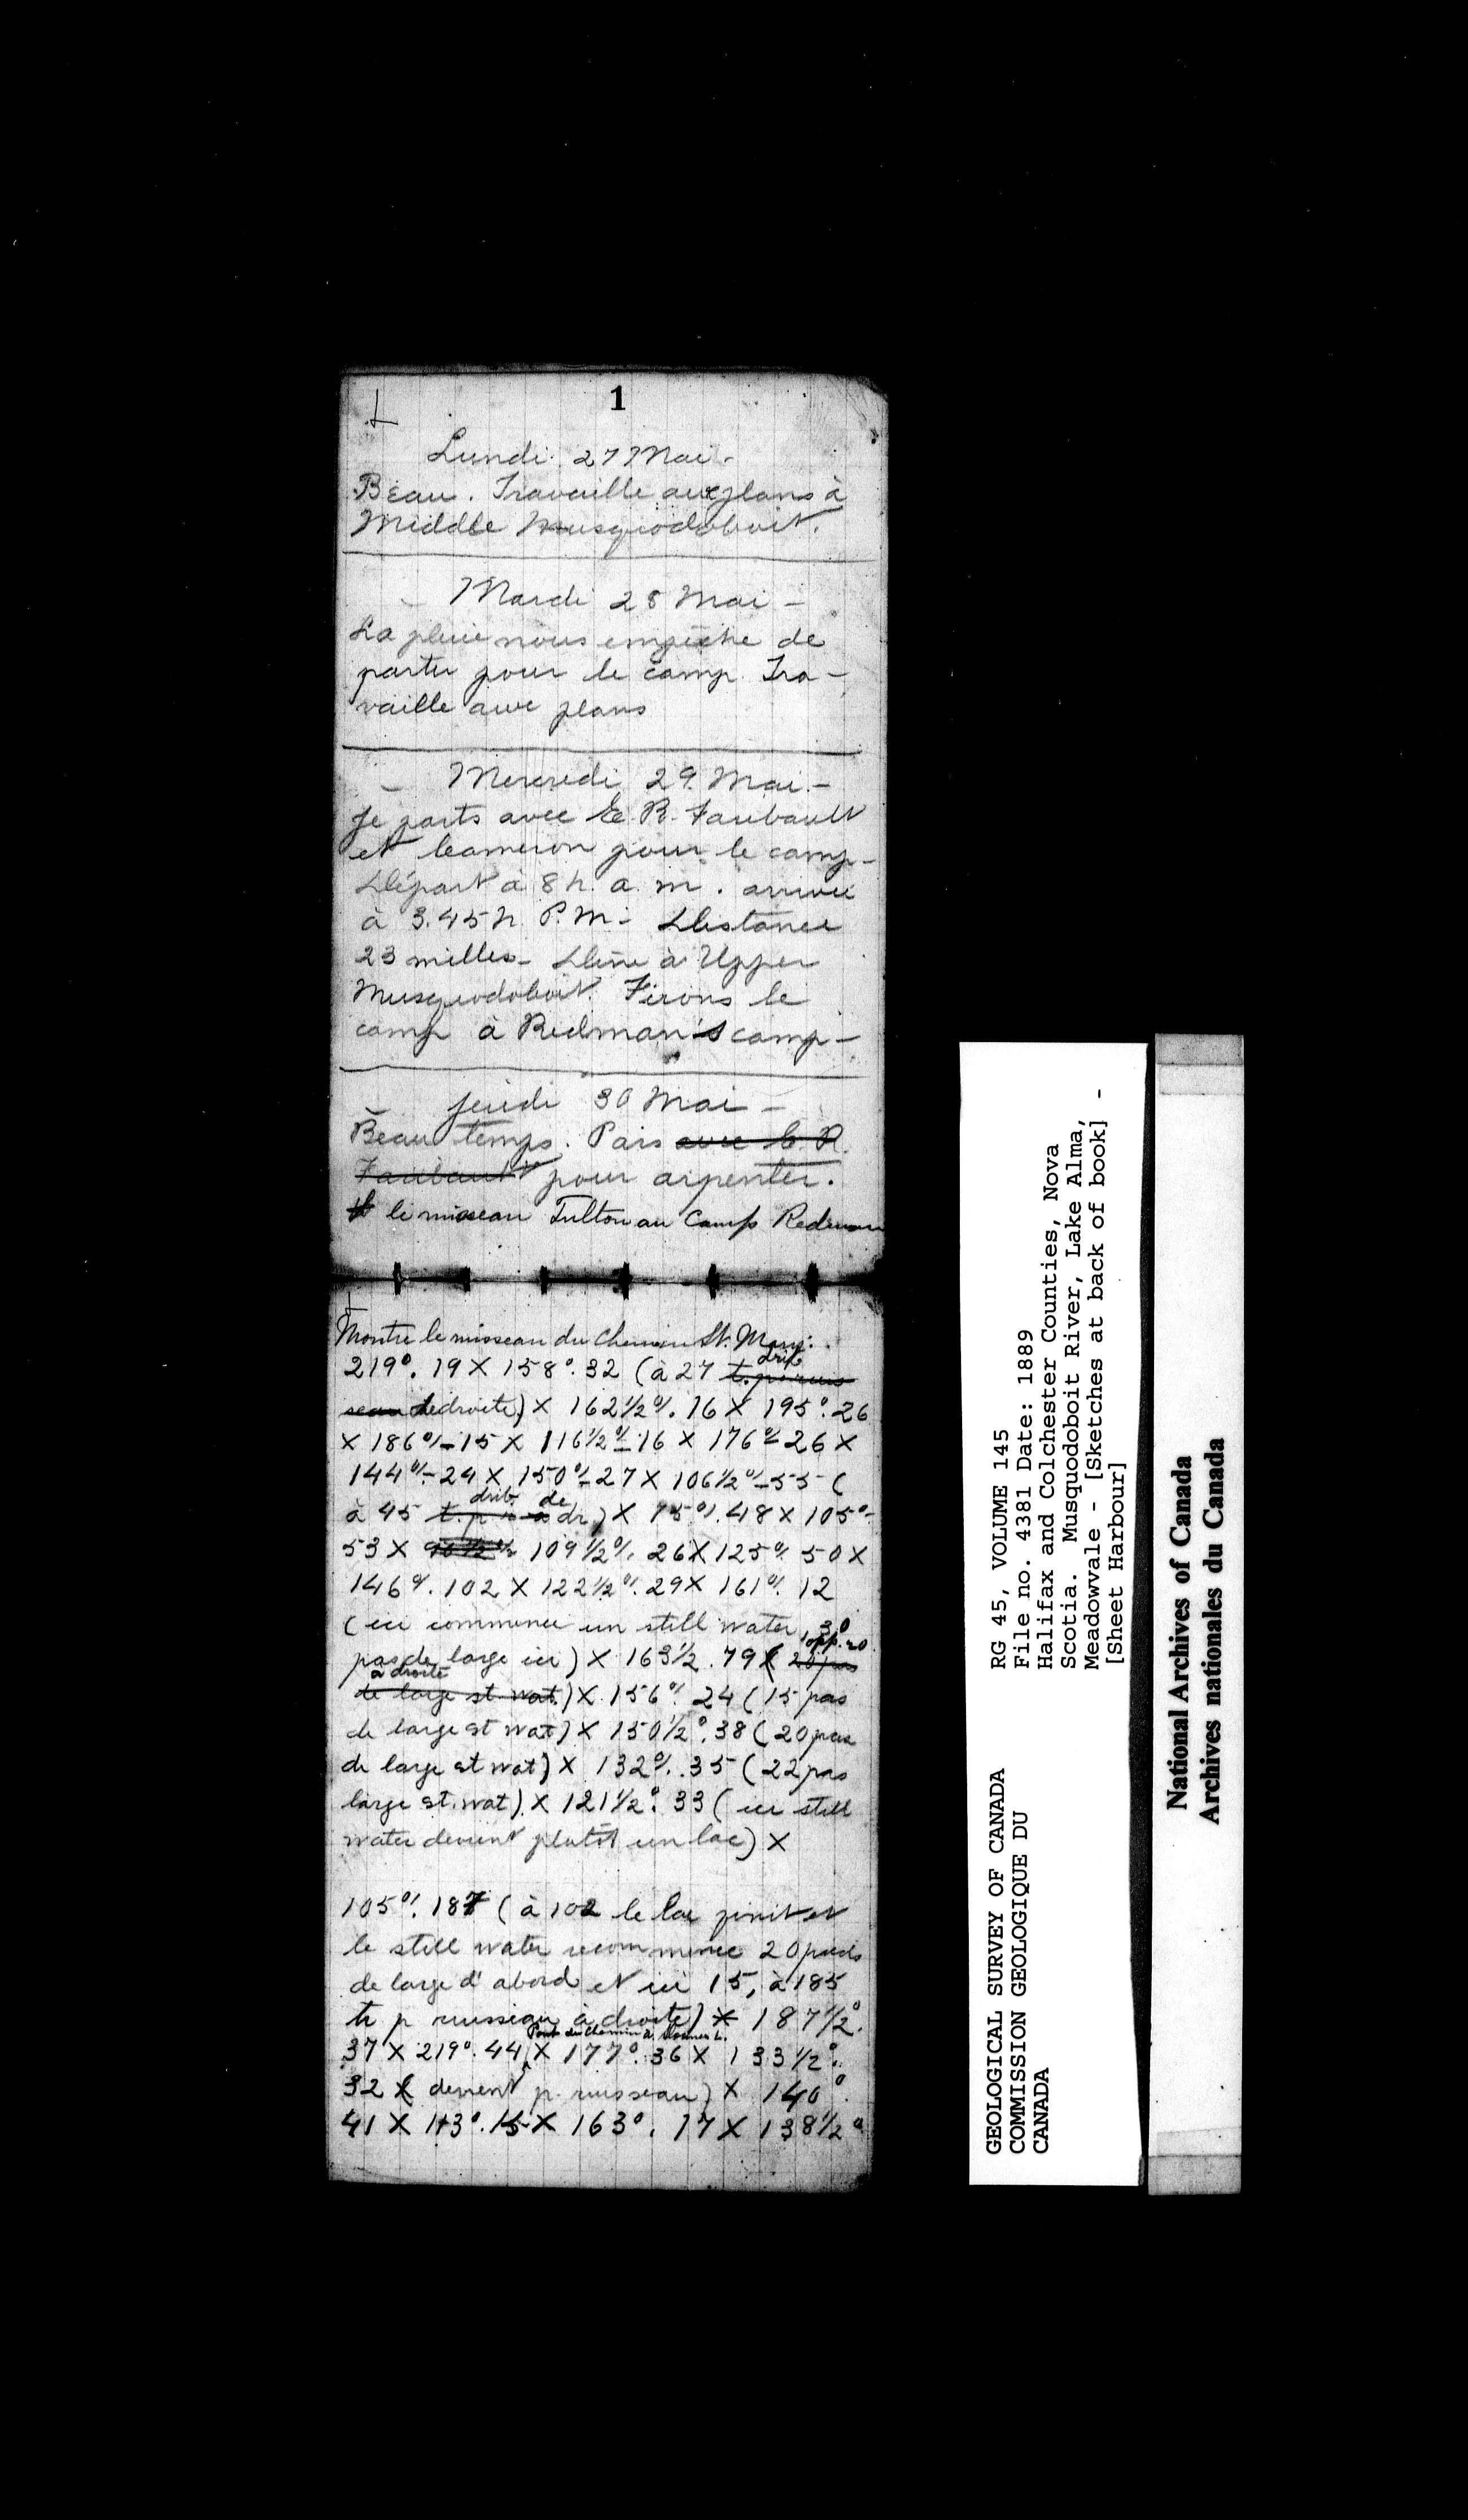 1
Lundi 27 Mai -
Beau. Travaille aux plans à
Middle Musquodoboit.
- Mardi 28 Mai -
La pluie nous empêche de
partir pour le camp. Tra-
vaille aux plans
- Mercredi 29 Mai. -
Je parts avec E. R. Faribault
et Cameron pour le camp -
Départ à 8 h. a. m. arrivée
à 3.45 h. P.M. - Distance
23 milles - Dîné à Upper
Musquodoboit. Fixons le
camp à Redman's camp -
Jeudi 30 Mai -
Beau temps. Pars avec E. R.
Faribault pour arpenter.
le ruisseau Fulton au Camp Redman
Montre le ruisseau du Chemin St. Mary:
219°. 19 X 158°. 32 (à 27 t. p. ruis
seau de droite) X 162 1/2°. 16 X 195°. 26
X 186° - 15 X 116 1/2° - 16 X 176° - 26 X
144° - 24 X 150° - 27 X 106 1/2° - 55 (
drib. de
à 45 t. p. r. à dr) X 75°. 48 X 105° -
53 X 109 1/2°. 26 X 125°. 50 X
146°. 102 X 122 1/2°. 29 X 161°. 12
(ici commence un still water 30
pas de large ici) X 163 1/2. 79 ( 20 pas
à droite
de large st. wat.) X 156°. 24 (15 pas
de large st wat) X 150 1/2°. 38 (20 pas
de large st wat) X 132°. 35 (22 pas
large st. wat) X 121 1/2°. 33 (ici still
water devient plutôt un lac) X
105°. 187 (à 102 le lac finit et
le still water recommence 20 pieds
de large d'abord et ici 15, à 185
tr p ruisseau à droite) X 187 1/2°.
Pont du Chemin à
37 X 219°. 44 X 177°. 36 X 133 1/2°.
32 ( devient p. ruisseau) X 140°.
41 X 113°. 15 X 163°. 17 X 138 1/2°
GEOLOGICAL SURVEY OF CANADA
COMMISSION GEOLOGIQUE DU
CANADA
RG 45, VOLUME 145
File no. 4381 Date: 1889
Halifax and Colchester Counties, Nova
Scotia. Musquodoboit River, Lake Alma,
Meadowvale - [Sketches at back of book] -
[Sheet Harbour]
National Archives of Canada
Archives nationales du Canada